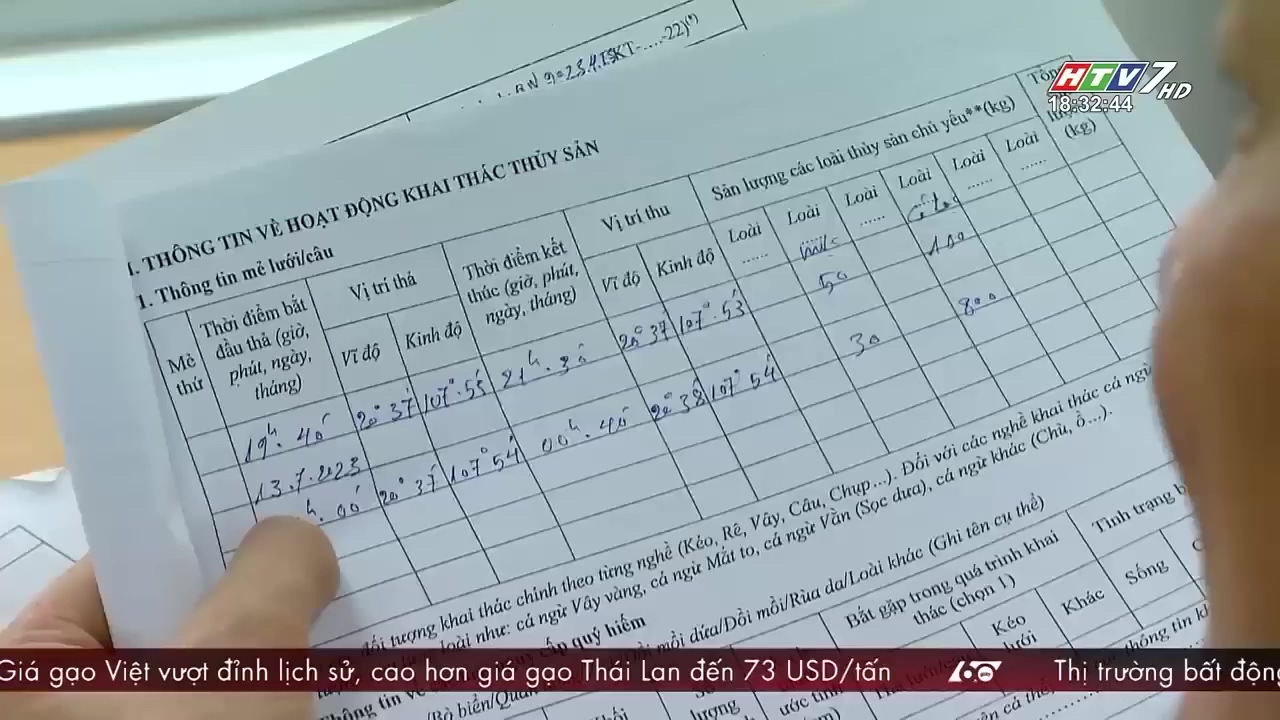 HTV7 HD
18:32:44
I. THÔNG TIN VỀ HOẠT ĐỘNG KHAI THÁC THỦY SẢN
1. Thông tin mẻ lưới/câu
Mẻ thứ
Thời điểm bắt đầu thả (giờ, phút, ngày, tháng)
Vị trí thả
Vĩ độ
Kinh độ
Thời điểm kết thúc (giờ, phút, ngày, tháng)
Vị trí thu
Vĩ độ
Kinh độ
Sản lượng các loài thủy sản chủ yếu**(kg)
Loài ......
Loài mực
Loài ......
Loài
Loài ......
Loài ......
(kg)
19h.40' 20°37' 107°.55' 21h.30' 20°37' 107°.53' 50 100
13.7.2023
h.00' 20°37' 107°54' 00h.40' 20°38' 107°54' 30 800
đối tượng khai thác chính theo từng nghề (Kéo, Rê, Vây, Câu, Chụp...). Đối với các nghề khai thác cá ngừ
loài như: cá ngừ Vây vàng, cá ngừ Mắt to, cá ngừ Vằn (Sọc dưa), cá ngừ khác (Chù, ồ...).
cấp quý hiếm
mồi dứa/Đồi mồi/Rùa da/Loài khác (Ghi tên cụ thể)
Bắt gặp trong quá trình khai thác (chọn 1)
Kéo lưới
Khác
Tình trạng
Sống
lượng
ước tính
Giá gạo Việt vượt đỉnh lịch sử, cao hơn giá gạo Thái Lan đến 73 USD/tấn
60 giây
Thị trường bất động